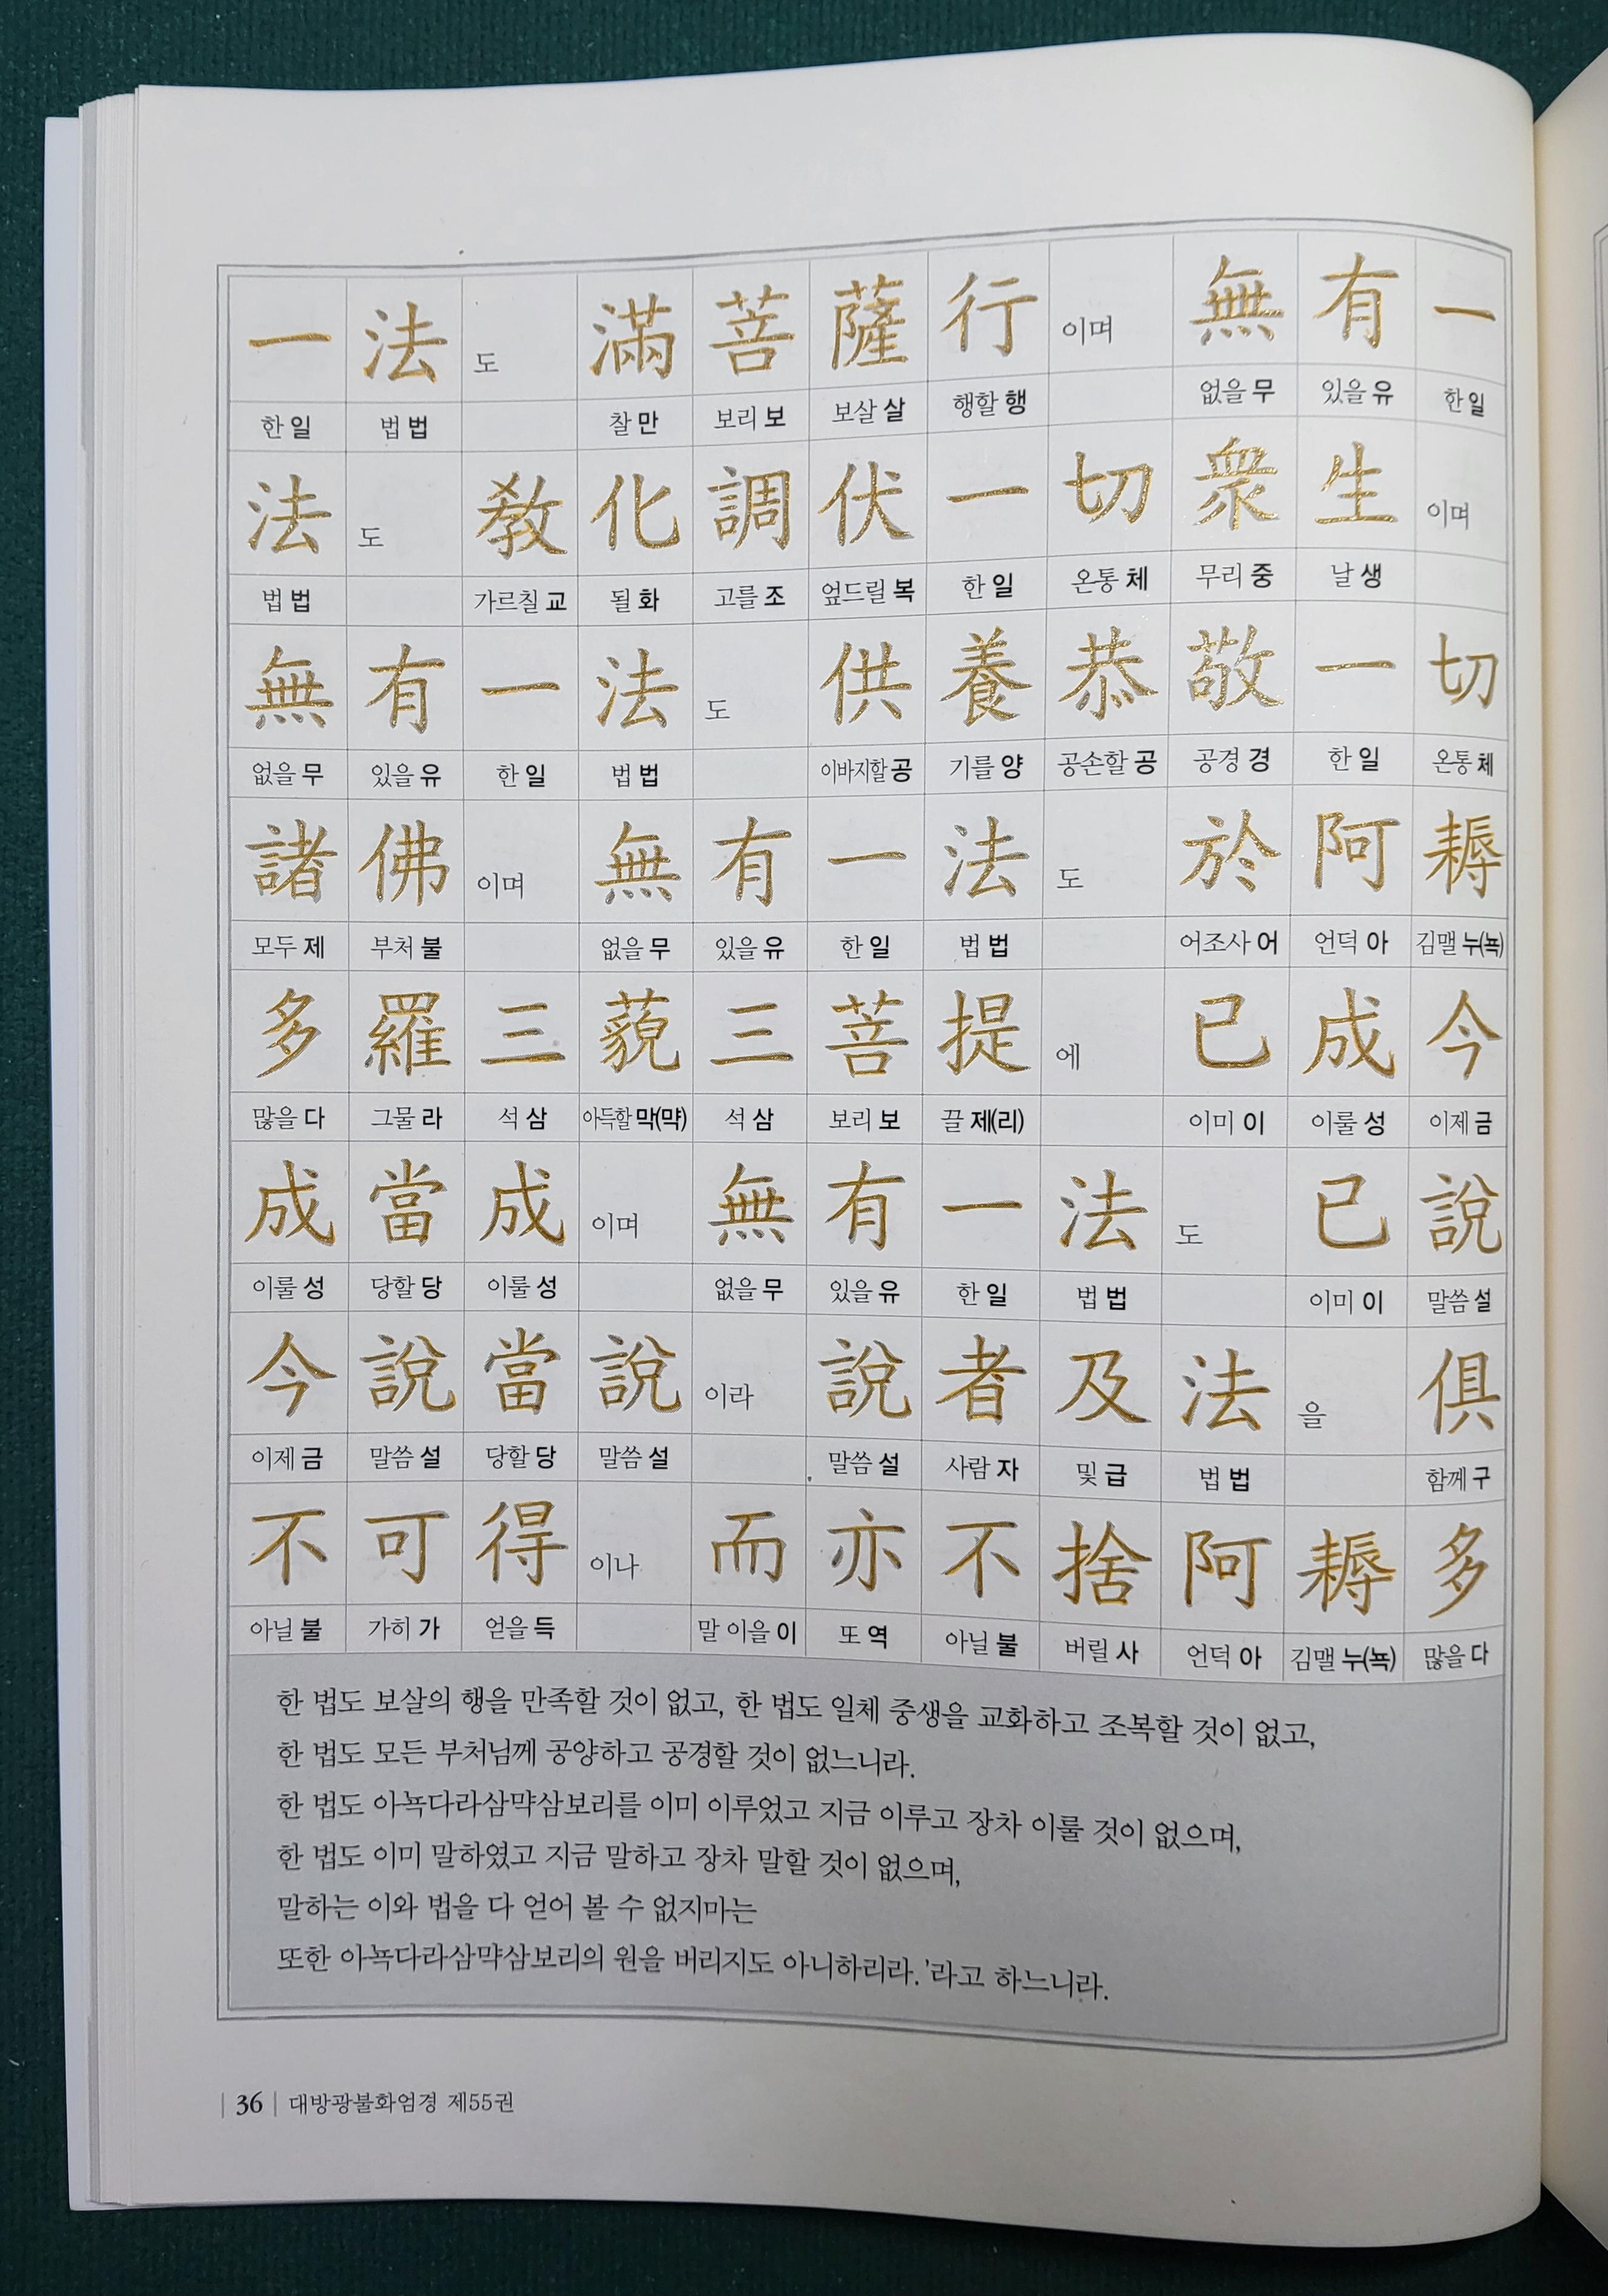 一 法 도 滿 菩 薩 行 이며 無 有 一
한 일 법 법 찰 만 보리 보 보살 살 행할 행 없을 무 있을 유 한 일
法 도 敎 化 調 伏 一 切 衆 生 이며
법 법 가르칠 교 될 화 고를 조 엎드릴 복 한 일 온통 체 무리 중 날 생
無 有 一 法 도 供 養 恭 敬 一 切
없을 무 있을 유 한 일 법 법 이바지할 공 기를 양 공손할 공 공경 경 한 일 온통 체
諸 佛 이며 無 有 一 法 도 於 阿 耨
모두 제 부처 불 없을 무 있을 유 한 일 법 법 어조사 어 언덕 아 김맬 누(뇩)
多 羅 三 藐 三 菩 提 에 已 成 今
많을 다 그물 라 석 삼 아득할 막(먁) 석 삼 보리 보 끌 제(리) 이미 이 이룰 성 이제 금
成 當 成 이며 無 有 一 法 도 已 說
이룰 성 당할 당 이룰 성 없을 무 있을 유 한 일 법 법 이미 이 말씀 설
今 說 當 說 이라 說 者 及 法 을 俱
이제 금 말씀 설 당할 당 말씀 설 말씀 설 사람 자 및 급 법 법 함께 구
不 可 得 이나 而 亦 不 捨 阿 耨 多
아닐 불 가히 가 얻을 득 말 이을 이 또 역 아닐 불 버릴 사 언덕 아 김맬 누(뇩) 많을 다
한 법도 보살의 행을 만족할 것이 없고, 한 법도 일체 중생을 교화하고 조복할 것이 없고,
한 법도 모든 부처님께 공양하고 공경할 것이 없느니라.
한 법도 아뇩다라삼먁삼보리를 이미 이루었고 지금 이루고 장차 이룰 것이 없으며,
한 법도 이미 말하였고 지금 말하고 장차 말할 것이 없으며,
말하는 이와 법을 다 얻어 볼 수 없지마는
또한 아뇩다라삼먁삼보리의 원을 버리지도 아니하리라.'라고 하느니라.
| 36 | 대방광불화엄경 제55권